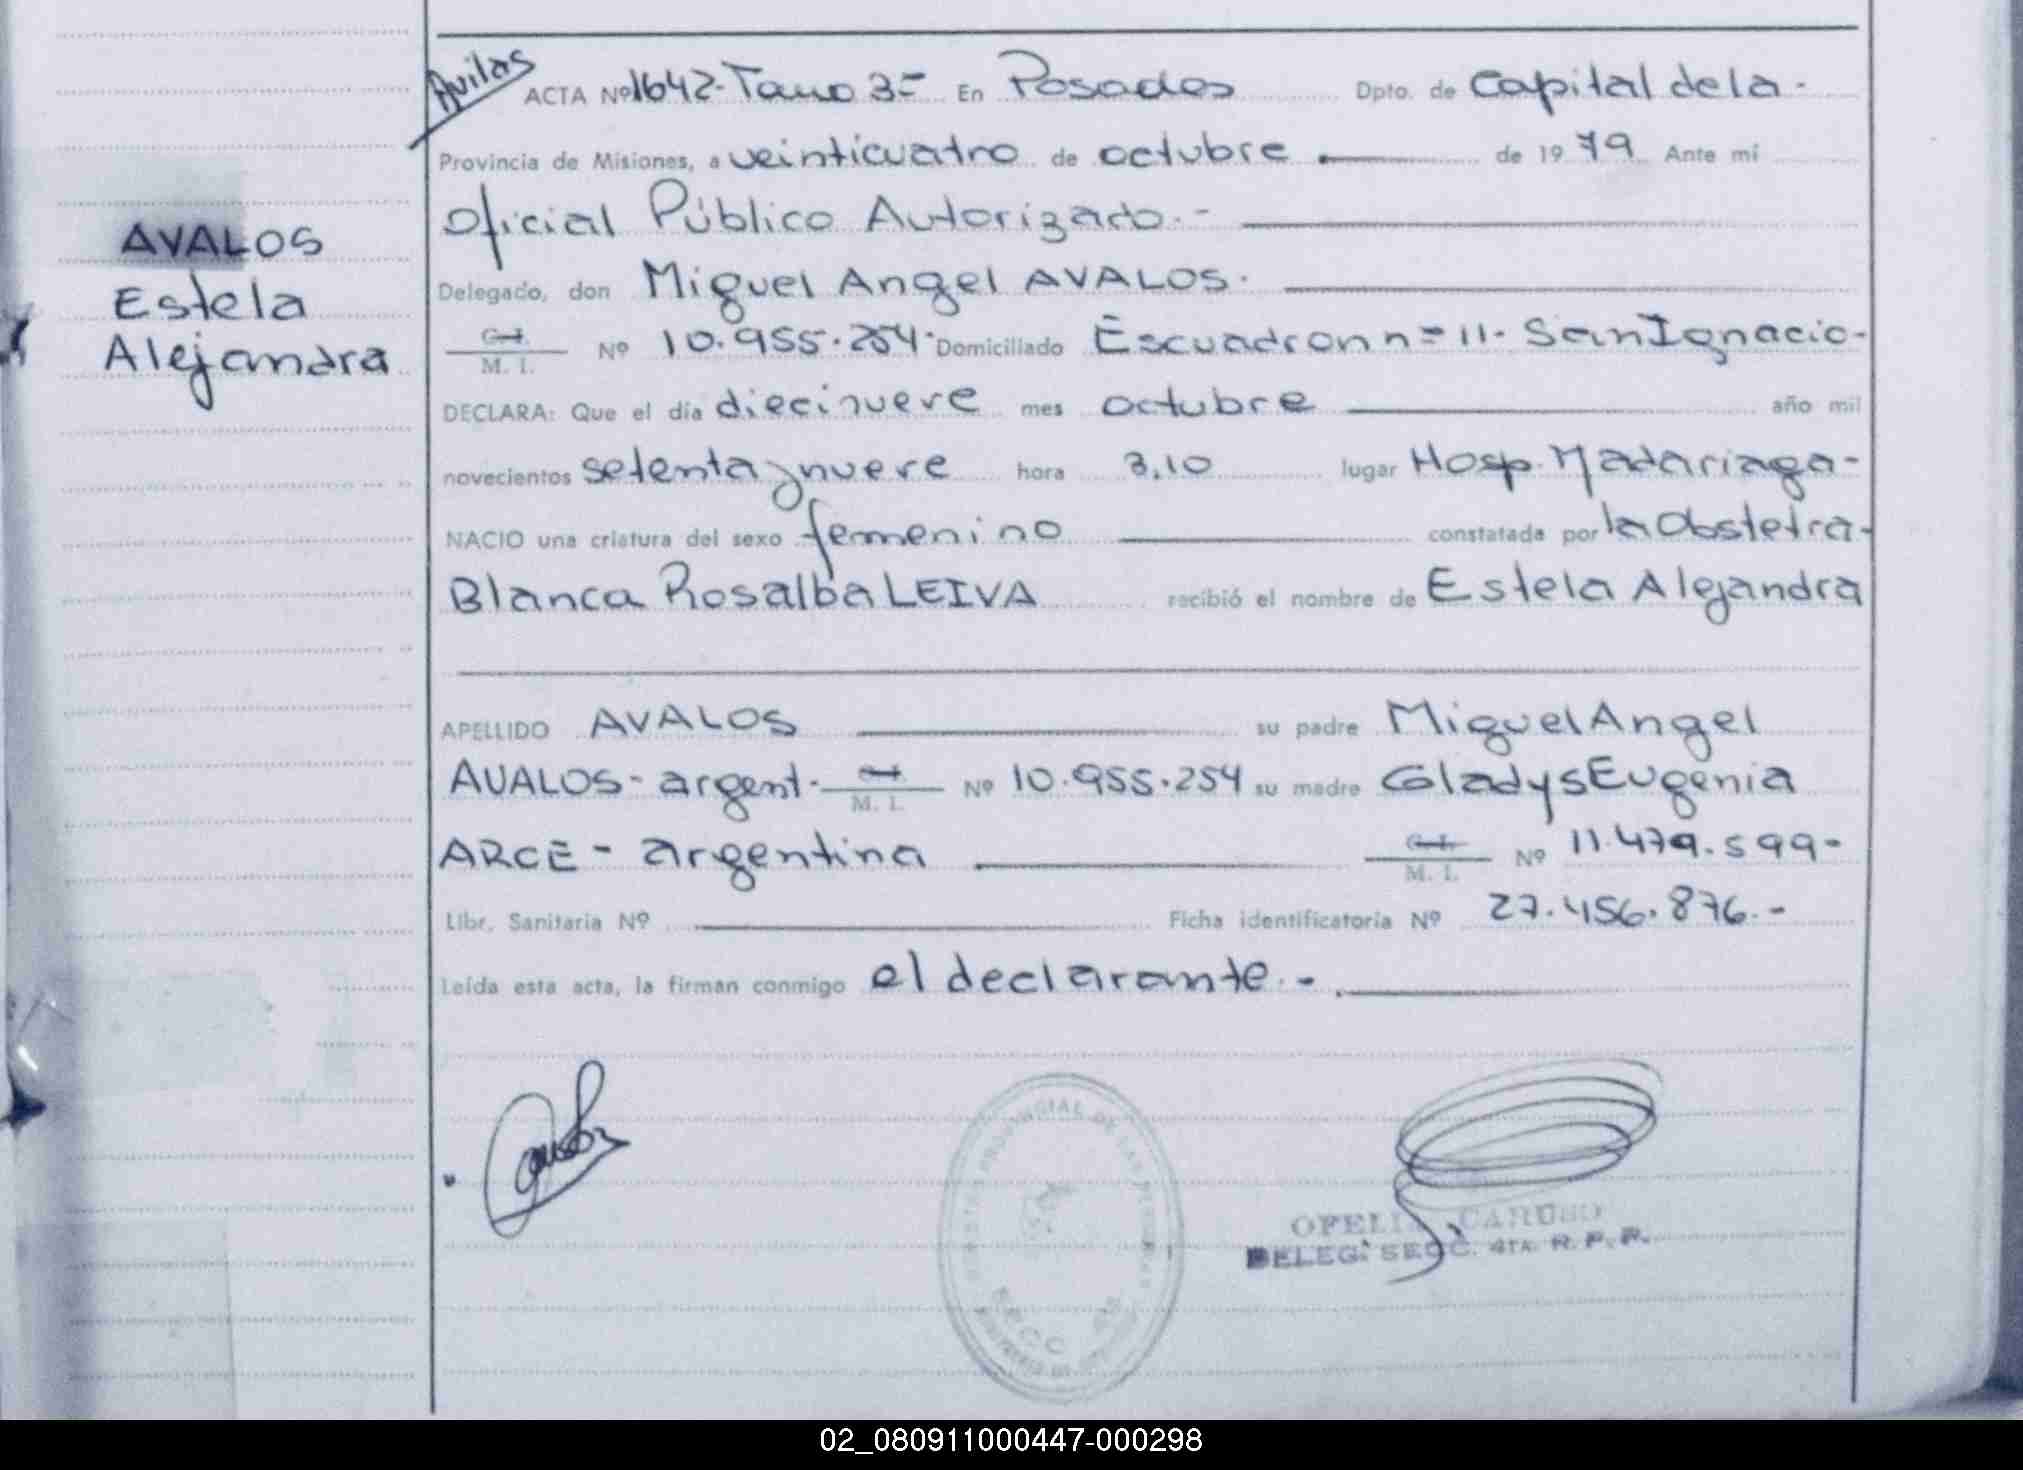 Avilas
ACTA Nº 1642- Tomo 3= En Posadas Dpto. de Capital de la -
Provincia de Misiones, a veinticuatro de octubre de 1979 Ante mí
Oficial Público Autorizado.-
AVALOS
Estela
Alejandra
Delegado, don Miguel Angel AVALOS.
C. I.
M. I.
Nº 10.955.254- Domiciliado Escuadron n=11- San Ignacio-
DECLARA: Que el día diecinueve mes octubre año mil
novecientos setenta y nueve hora 3,10 lugar Hosp. Madariaga-
NACIO una criatura del sexo femenino constatada por la Obstetra-
Blanca Rosalba LEIVA recibió el nombre de Estela Alejandra
APELLIDO AVALOS su padre Miguel Angel
AVALOS- argent.- C. I. M. I. Nº 10.955.254 su madre Gladys Eugenia
ARCE - argentina C. I. M. I. Nº 11.479.599-
Libr. Sanitaria Nº Ficha identificatoria Nº 27.456.876.-
Leída esta acta, la firman conmigo el declarante.-
OFELIA CARUSO
DELEG. SECC. 4TA. R. P. P.
02_080911000447-000298